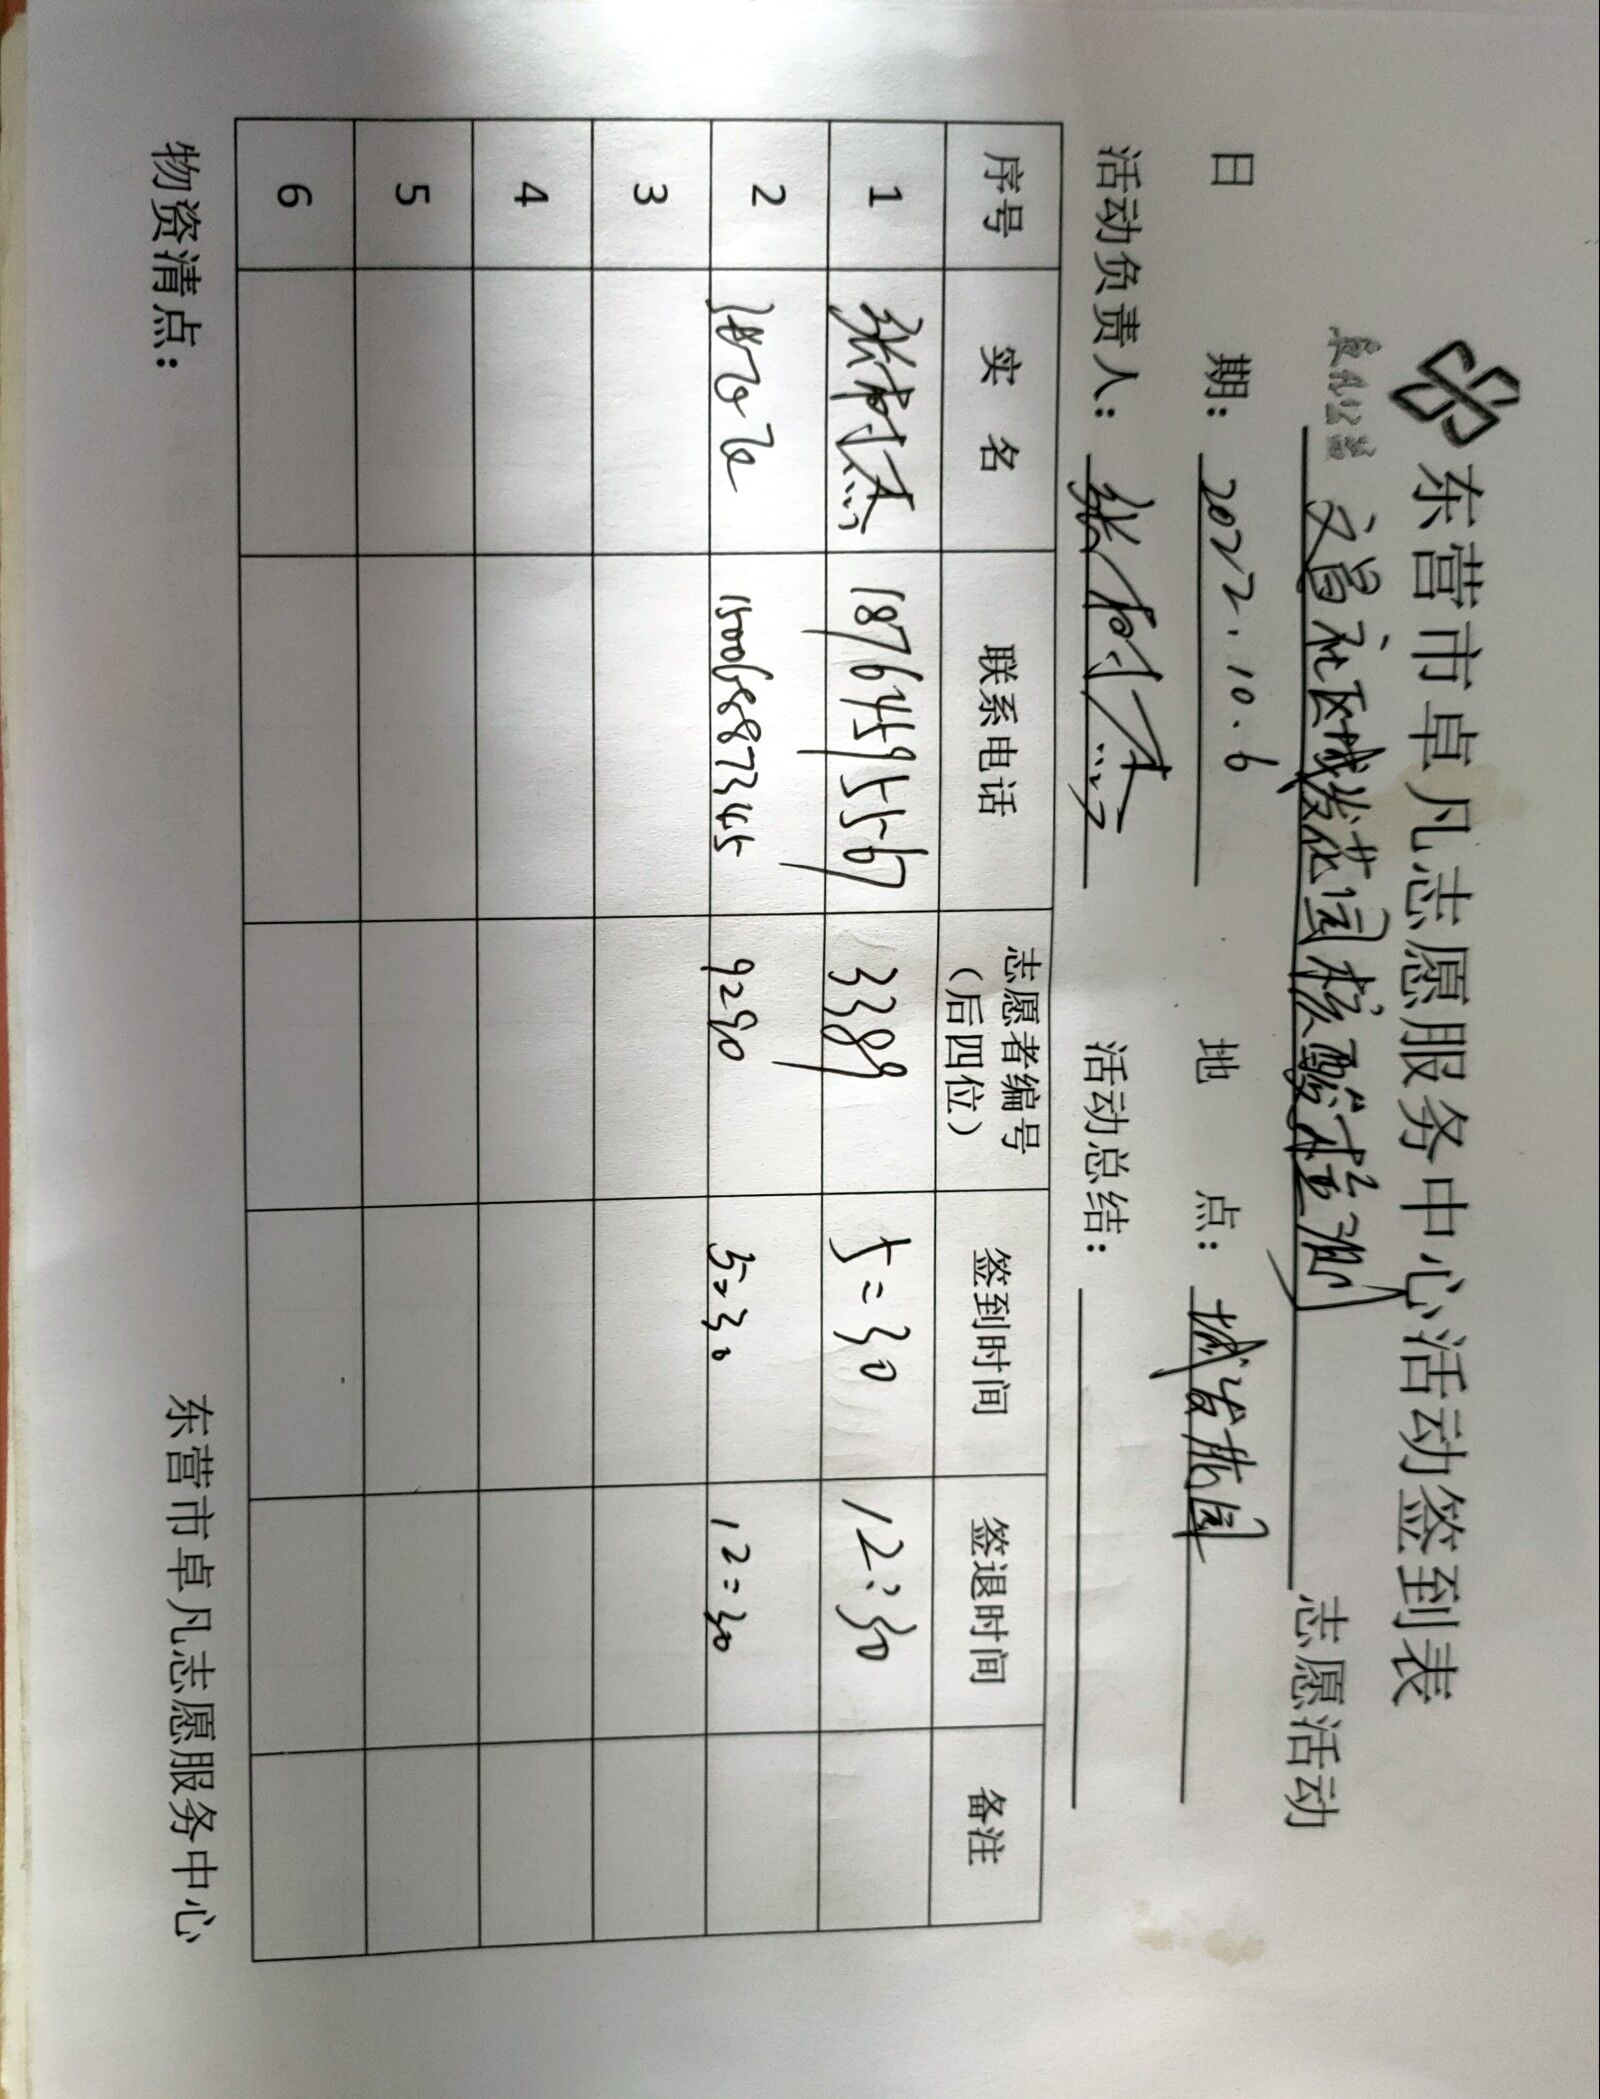 卓凡公益
东营市卓凡志愿服务中心活动签到表
文昌社区城发花园核酸检测 志愿活动
日 期: 2022.10.6 地 点: 城发花园
活动负责人: 张树杰 活动总结:
序号 实 名 联系电话 志愿者编号(后四位) 签到时间 签退时间 备注
1 张树杰 18764595567 3389 5:30 12:30
2 15006887345 9290 5:30 12:30
3
4
5
6
物资清点:
东营市卓凡志愿服务中心